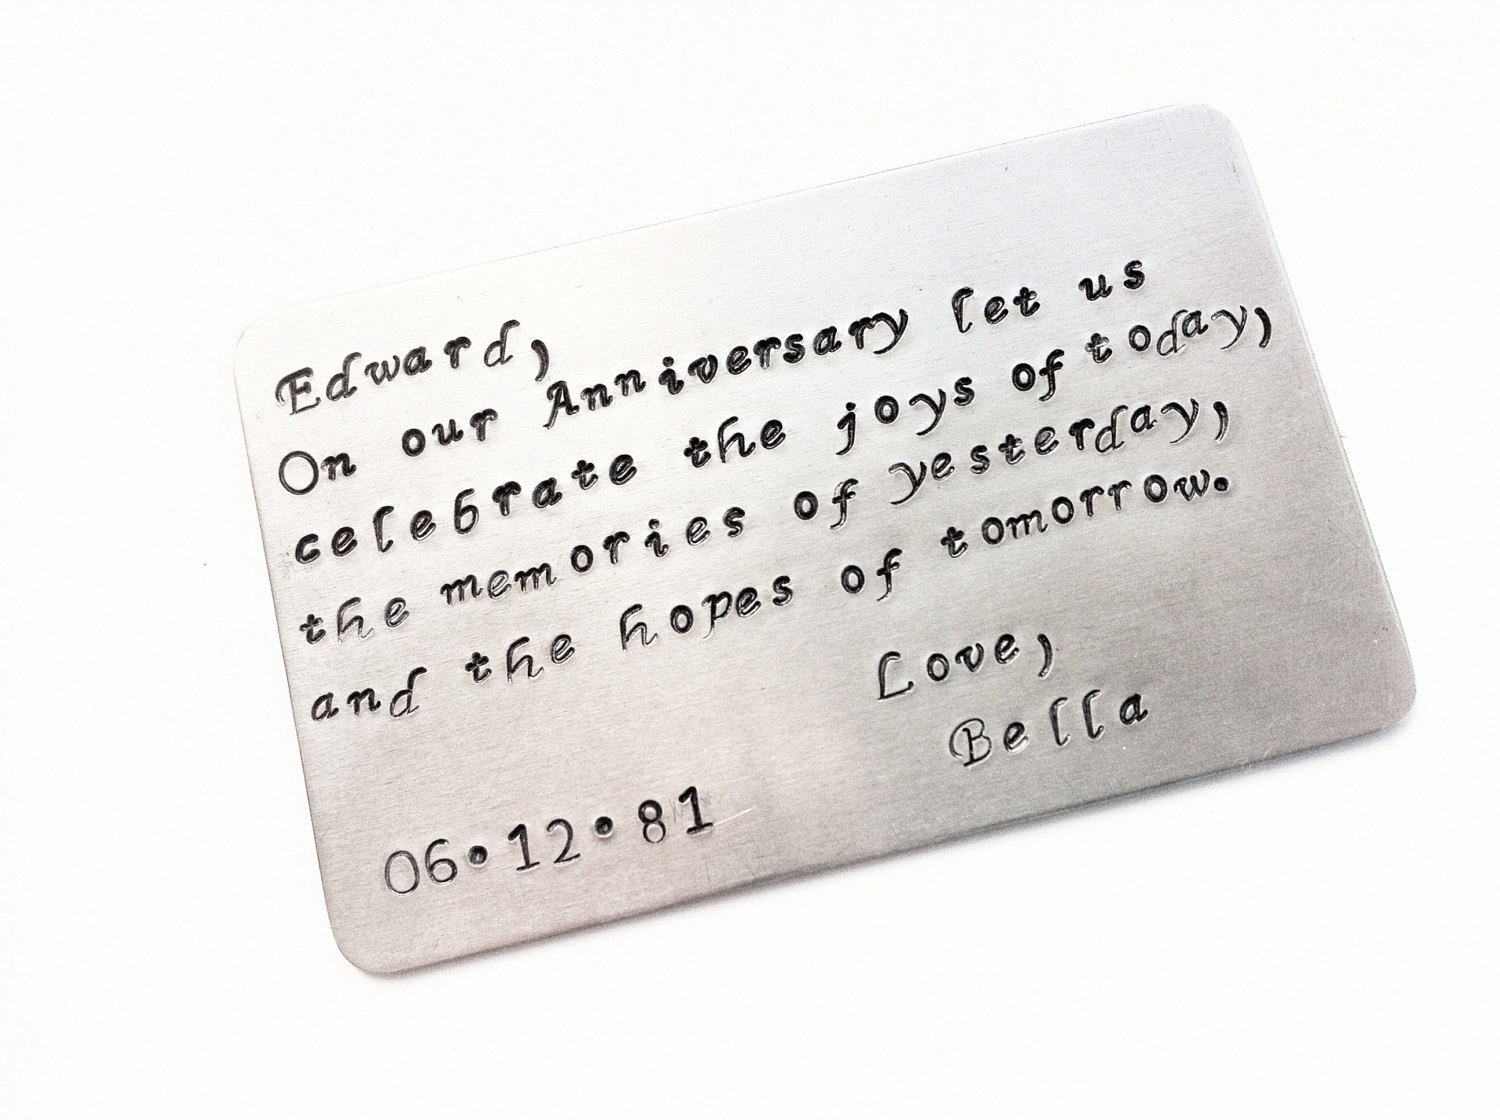 Edward,
On our Anniversary let us
celebrate the joys of today,
the memories of yesterday,
and the hopes of tomorrow.
Love,
Bella
06•12•81